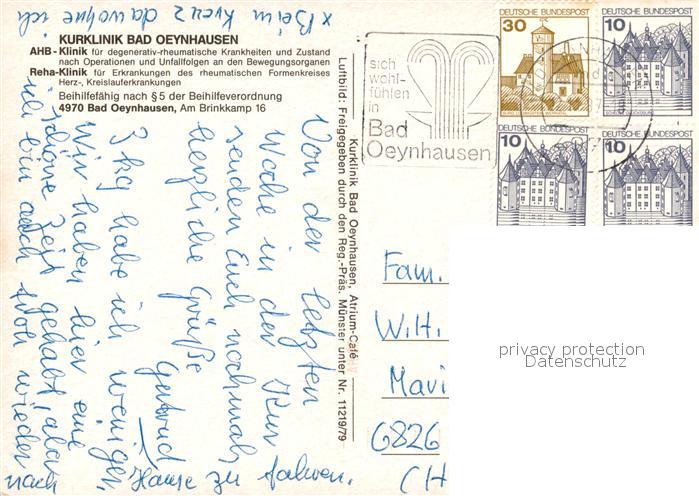 x Beim Kreuz da wohne ich
KURKLINIK BAD OEYNHAUSEN
AHB - Klinik für degenerativ-rheumatische Krankheiten und Zustand
nach Operationen und Unfallfolgen an den Bewegungsorganen
Reha-Klinik für Erkrankungen des rheumatischen Formenkreises
Herz-, Kreislauferkrankungen
Beihilfefähig nach § 5 der Beihilfeverordnung
4970 Bad Oeynhausen, Am Brinkkamp 16
Von der letzten
Woche in der Kur
senden Euch nochmals
herzliche Grüße
Gertrud
3 kg habe ich weniger.
Wir haben hier eine
schöne Zeit gehabt, aber
bin auch froh wieder
nach Hause zu fahren.
Kurklinik Bad Oeynhausen, Atrium-Café
Luftbild: Freigegeben durch den Reg.-Präs. Münster unter Nr. 11219/79
sich
wohl-
fühlen
in
Bad
Oeynhausen
30 DEUTSCHE BUNDESPOST
10 DEUTSCHE BUNDESPOST
10 DEUTSCHE BUNDESPOST
10 DEUTSCHE BUNDESPOST
Fam.
Wilh.
Mavi
6826
(H
privacy protection
Datenschutz